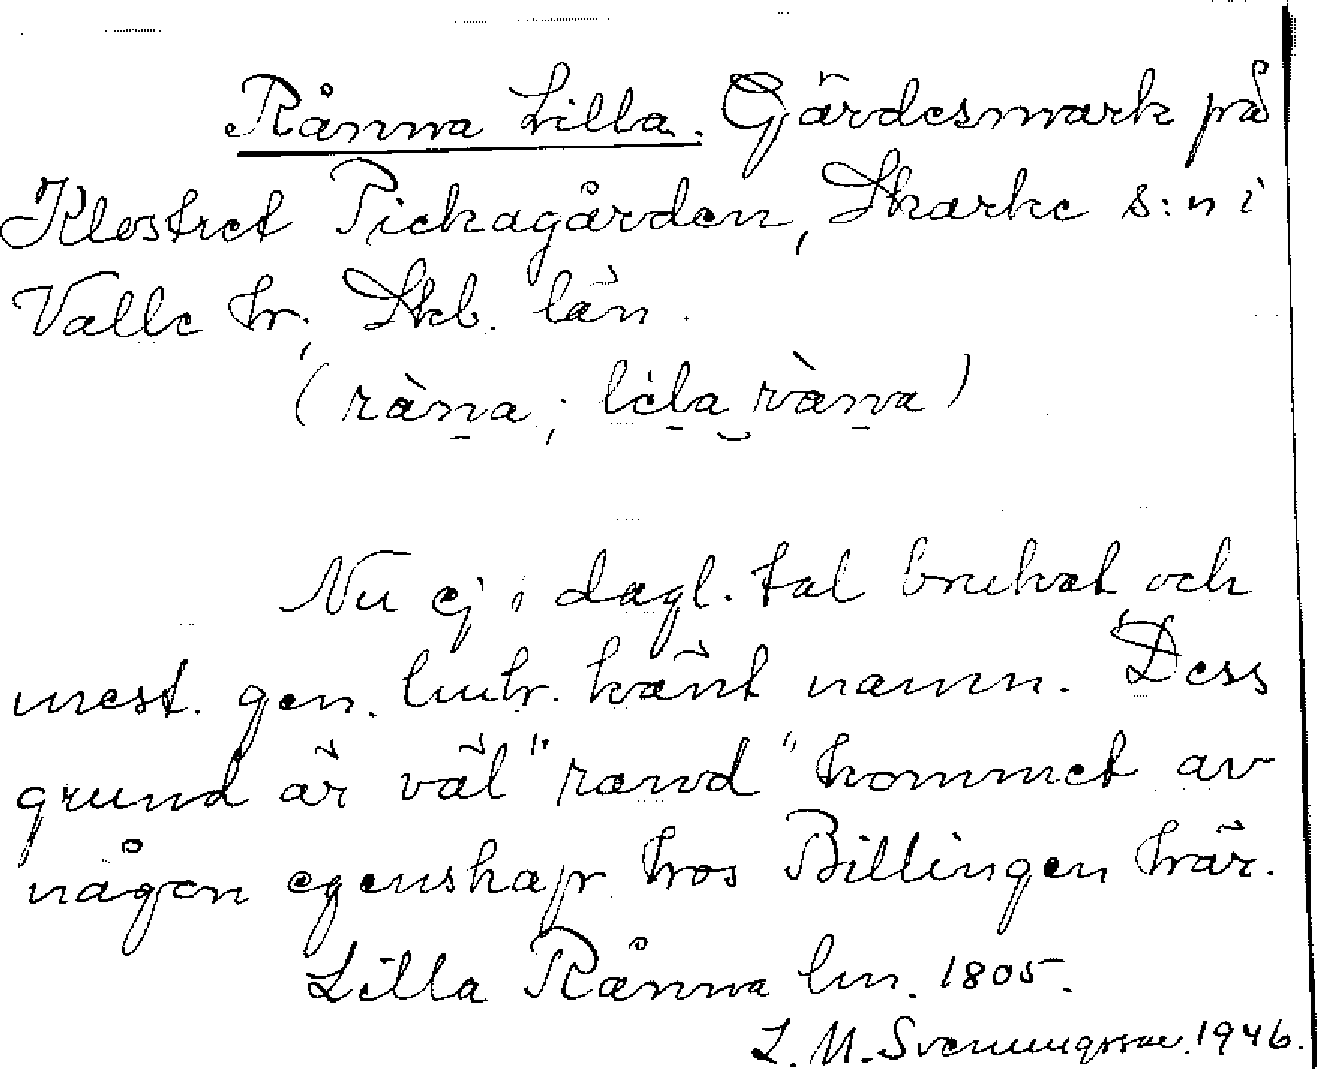 Rånna Lilla. Gärdesmark på
Klostret Pickagården, Skarke s:n i
Valle hr, Skb. län.
(ràna; lila ràna)
Nu ej i dagl. tal brukat och
mest. gen. lmtr. känt namn. Dess
grund är väl "rand" kommet av
någon egenskap hos Billingen här.
Lilla Rånna lm. 1805.
L. M. Svenungsson. 1946.